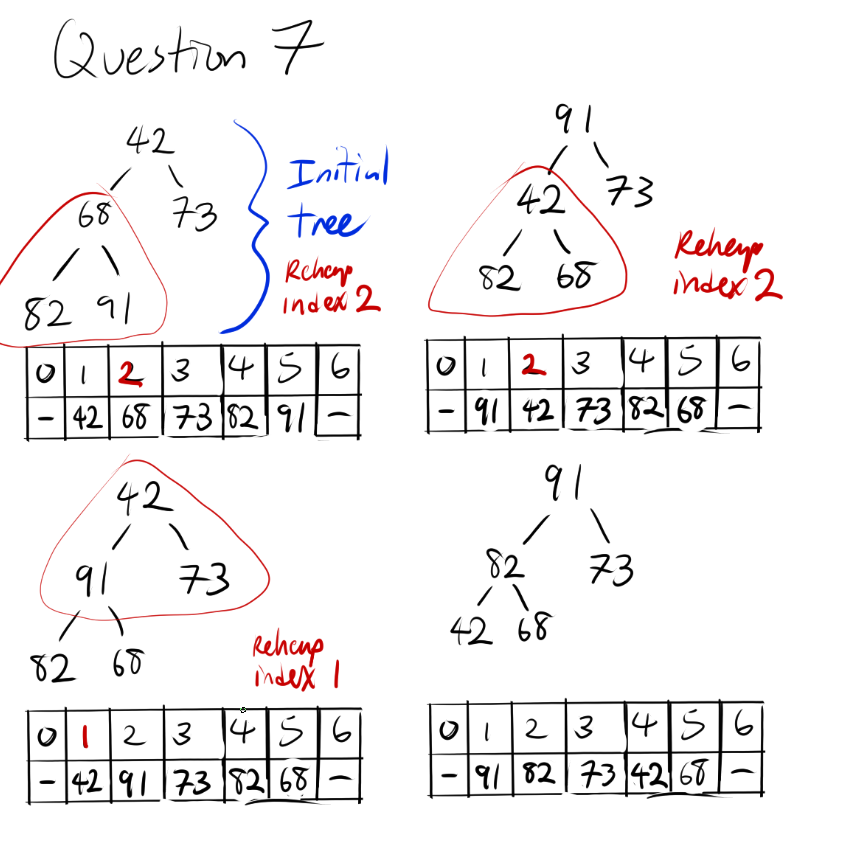 Question 7
42
68 73
82 91
Initial
tree
Reheap
index 2
0 1 2 3 4 5 6
- 42 68 73 82 91 -
91
42 73
82 68
Reheap
index 2
0 1 2 3 4 5 6
- 91 42 73 82 68 -
42
91 73
82 68
Reheap
index 1
0 1 2 3 4 5 6
- 42 91 73 82 68 -
91
82 73
42 68
0 1 2 3 4 5 6
- 91 82 73 42 68 -